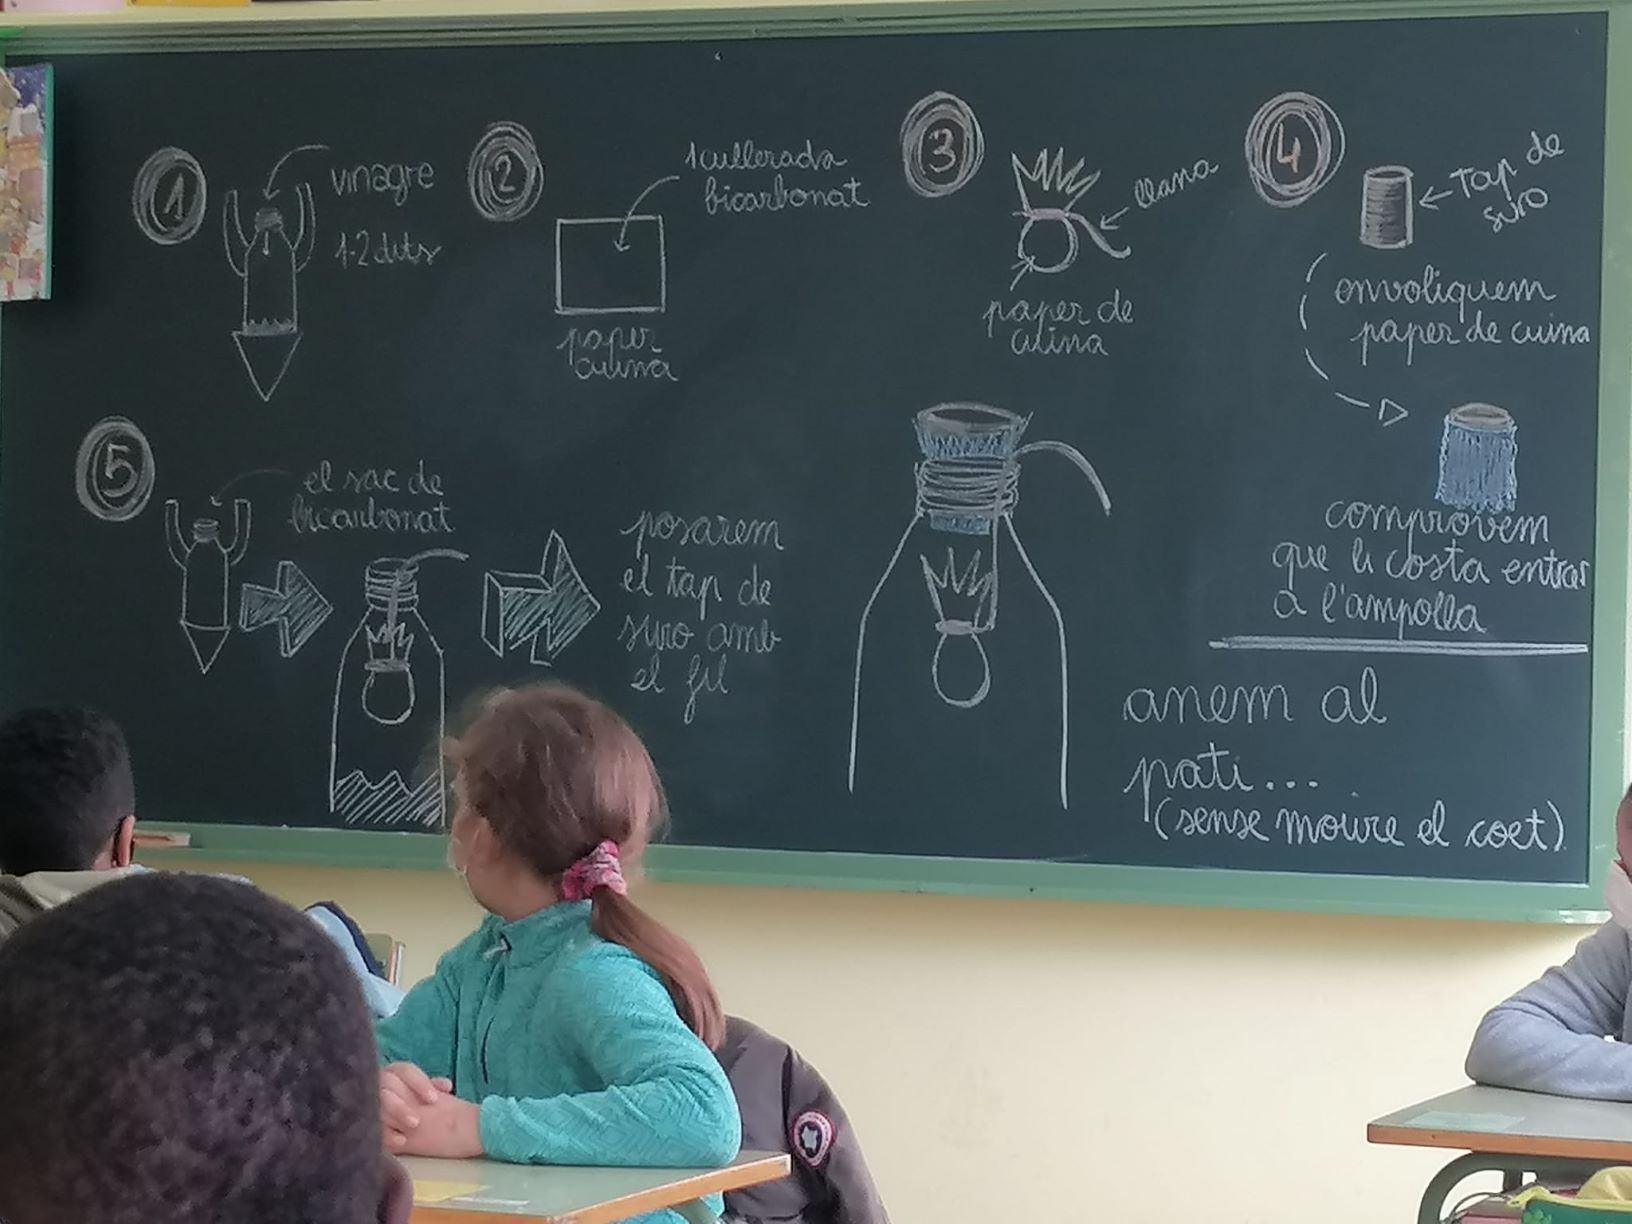 1
vinagre
1-2 dits
2
1 cullerada
bicarbonat
paper
cuina
3
llana
paper de
cuina
4
Tap de
suro
envoliquem
paper de cuina
comprovem
que li costa entrar
a l'ampolla
5
el sac de
bicarbonat
posarem
el tap de
suro amb
el fil
anem al
pati...
(sense moure el coet)